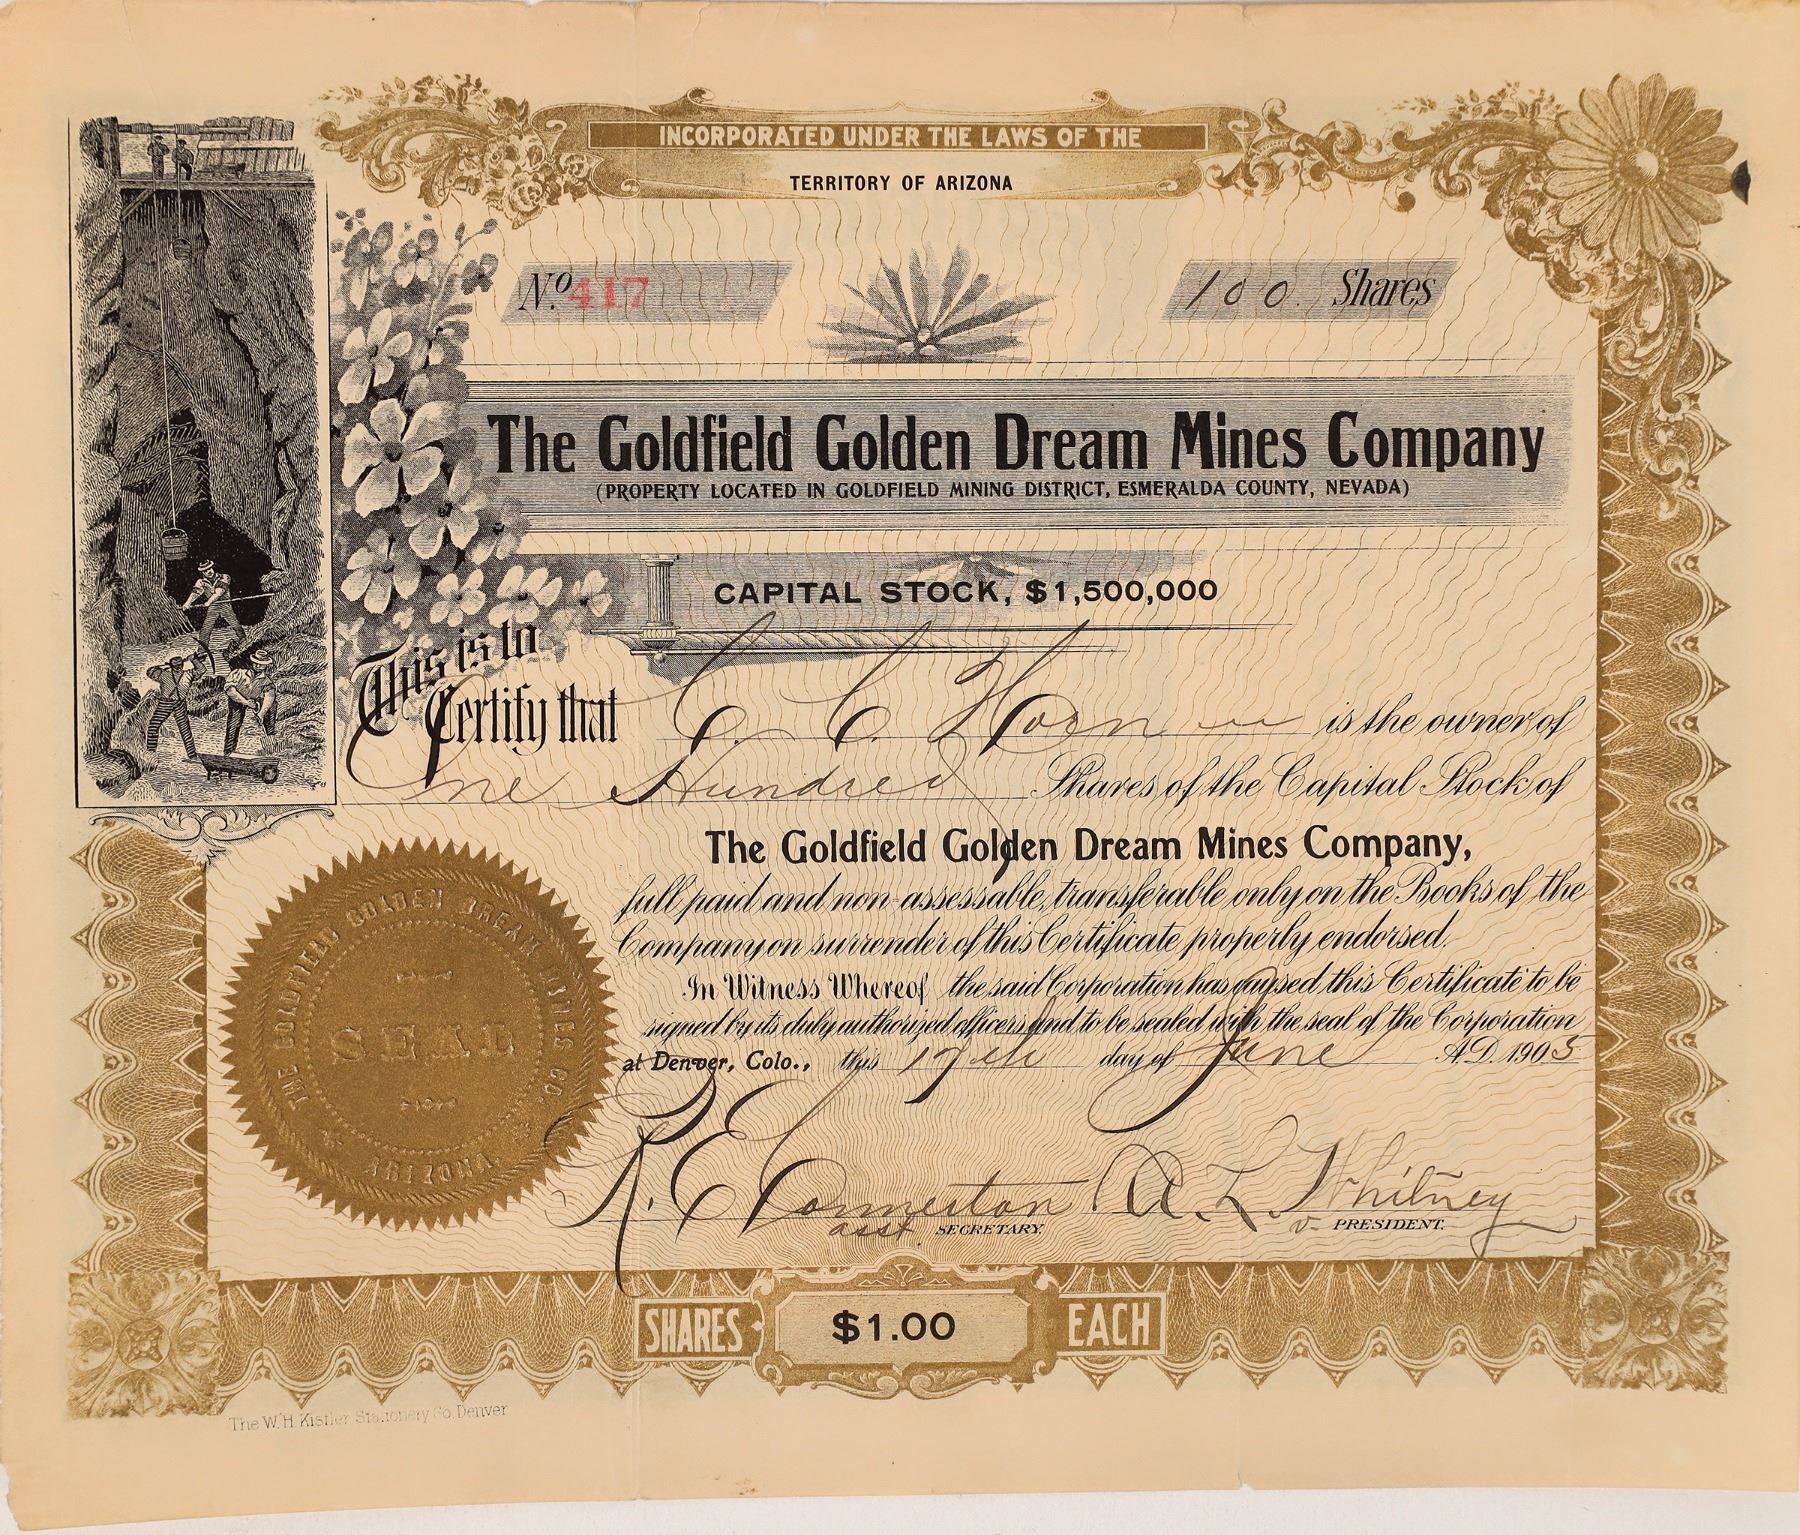 INCORPORATED UNDER THE LAWS OF THE
TERRITORY OF ARIZONA
No. 417
100 Shares
The Goldfield Golden Dream Mines Company
(PROPERTY LOCATED IN GOLDFIELD MINING DISTRICT, ESMERALDA COUNTY, NEVADA)
CAPITAL STOCK, $1,500,000
This is to
Certify that C. C. Horn is the owner of
One Hundred Shares of the Capital Stock of
The Goldfield Golden Dream Mines Company,
full paid and non-assessable, transferable only on the Books of the
Company on surrender of this Certificate properly endorsed.
In Witness Whereof the said Corporation has caused this Certificate to be
signed by its duly authorized officers and to be sealed with the seal of the Corporation
at Denver, Colo., this 17th day of June A.D. 1905
THE GOLDFIELD GOLDEN DREAM MINES CO.
SEAL
ARIZONA
R. E. Connerton A. L. Whitney
asst. SECRETARY. V- PRESIDENT.
SHARES $1.00 EACH
The W.H Kistler Stationery Co, Denver